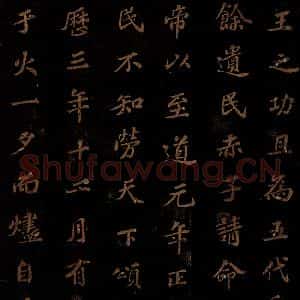 王之功且為五代
餘遺民赤子請命
帝以至道元年正
民不知勞天下頌
曆三年十二月有
于火一夕而燼自
Shufawang.CN